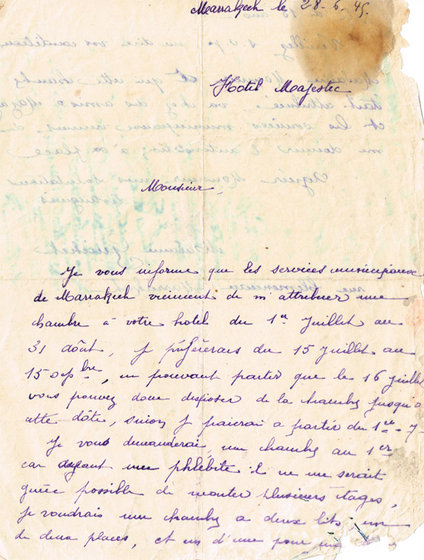 Marrakech le 28-6-45.
Hotel Majestic
Monsieur
Je vous informe que les services municipaux
de Marrakech viennent de m'attribuer une
chambre à votre hotel du 1er Juillet au
31 Aôut, je préférerais du 15 Juillet au
15 7bre, ne pouvant partir que le 16 juillet
vous pouvez donc disposer de la chambre jusqu'à
cette dâte, sinon je paierai à partir du 1er-7-
Je vous demanderai une chambre au 1er
car ayant une phlébite il ne me serait
guère possible de monter plusieurs étages,
je voudrais une chambre à deux lits, un
de deux places, et un d'une pour